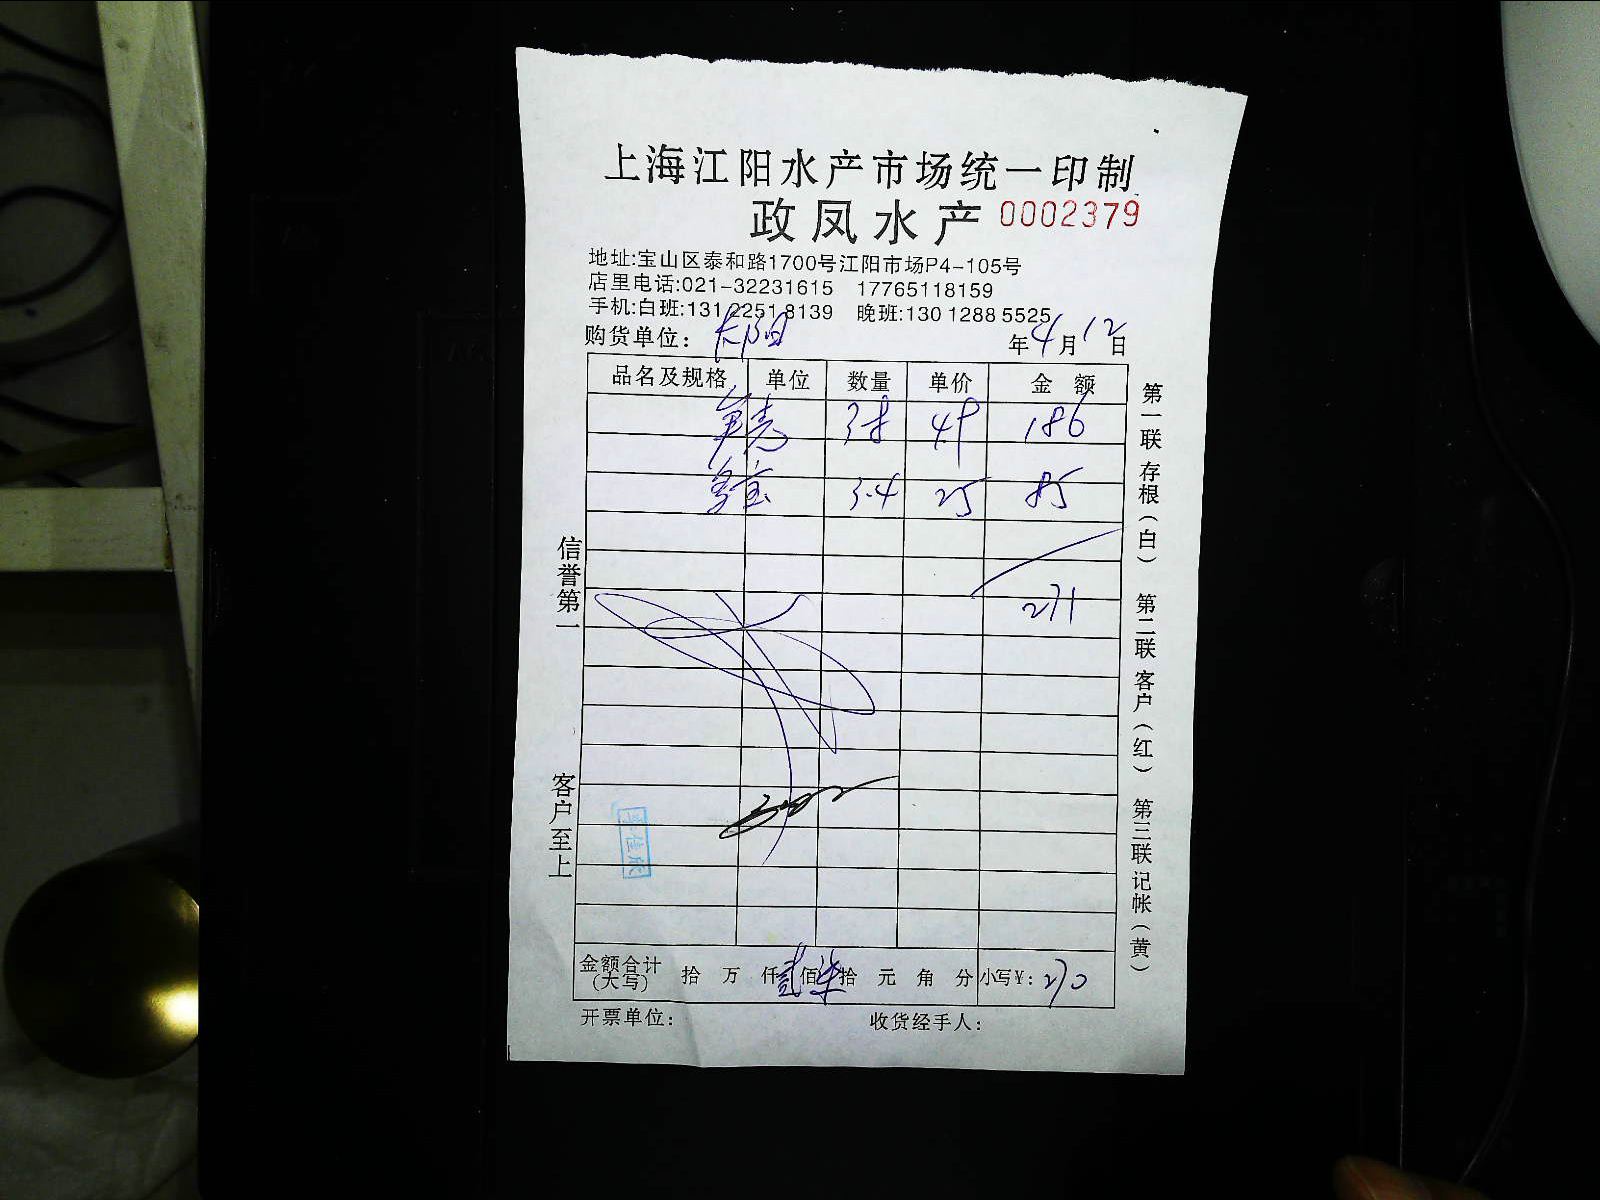 上海江阳水产市场统一印制
政凤水产 0002379
地址:宝山区泰和路1700号江阳市场P4-105号
店里电话:021-32231615 17765118159
手机:白班:131 2251 8139 晚班:130 1288 5525
购货单位: 年4月12日
品名及规格 单位 数量 单价 金额
38 49 186
多宝 3.4 25 85
271
金额合计(大写) 拾 万 仟贰佰柒拾 元 角 分 小写¥:270
开票单位: 收货经手人:
信誉第一
客户至上
第一联 存根(白) 第二联 客户(红) 第三联 记帐(黄)